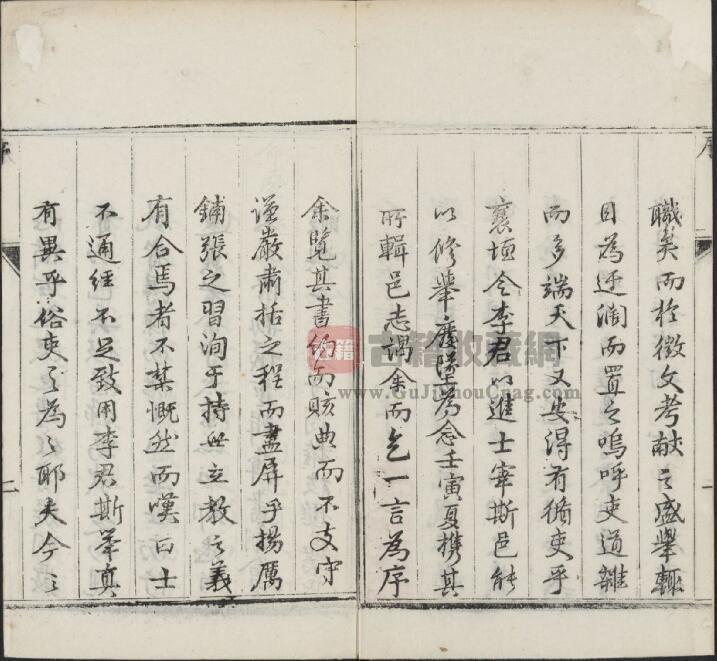 職矣而於徵文考献之盛舉輒
目為迂濶而置之嗚呼吏道雜
而多端天下又安得有循吏乎
襄垣令李君以進士宰斯邑能
以修舉廢墜為念壬寅夏携其
所輯邑志謁余而乞一言為序
余覽其書約而賅典而不支守
謹嚴肅括之程而盡屏乎揚厲
鋪張之習洵于持世立教之義
有合焉者不禁慨然而嘆曰士
不通經不足致用李君斯舉真
有異乎俗吏之為之耶夫今之
序
二
序
一
古籍
古籍收藏網
www.GuJiShouCang.com